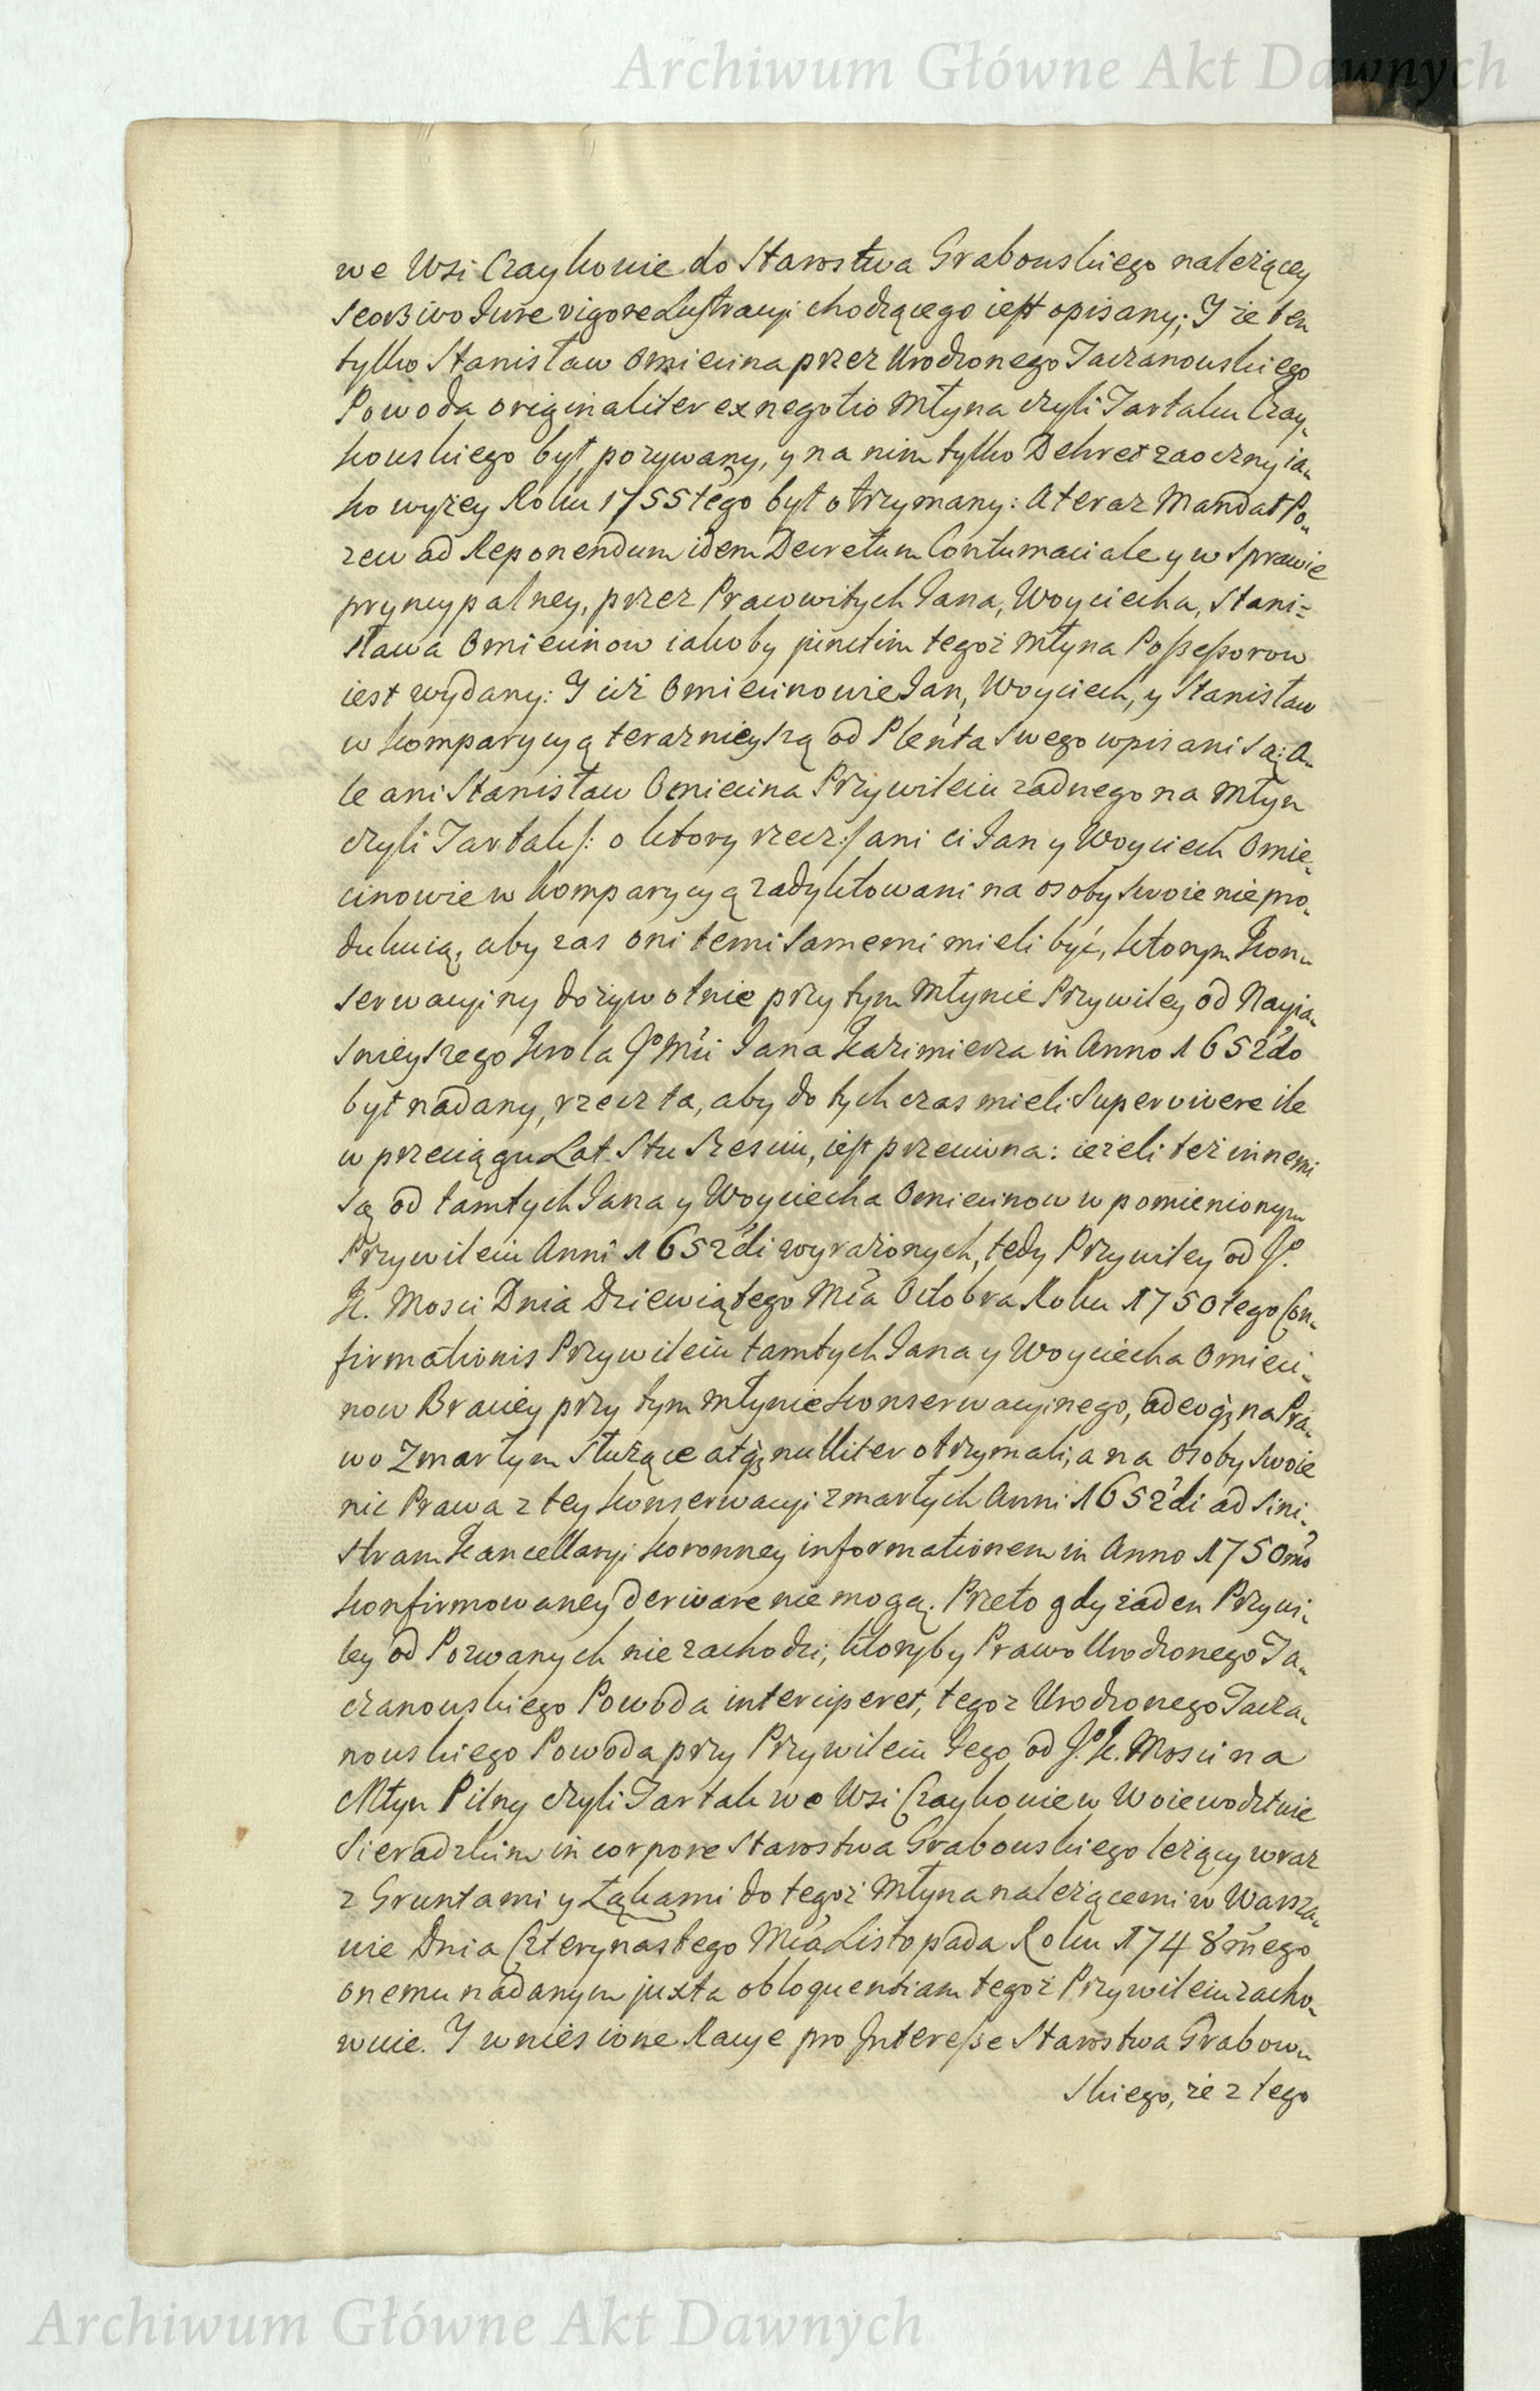 Archiwum Główne Akt Dawnych
we Wsi Czaykowie do Starostwa Grabowskiego należącey
seorsivo Jure vigore Lustracyi chodzącego iest opisany; Y że ten
tylko Stanisław Omiecina przez Urodzonego Taczanowskiego
Powoda originaliter ex negotio Młyna czyli Tartaku Czay-
kowskiego był pozywany, y na nim tylko Dekret zaoczny ia-
ko wyżey Roku 1755tego był otrzymany: A teraz Mandat Po-
zew ad Reponendum idem Decretum Contumaciale y w Sprawie
pryncypalney, przez Pracowitych Jana, Woyciecha, Stani=
sława Omiecinow iakoby junctim tegoż Młyna Possessorow
iest wydany: Y iuż Omiecinowie Jan, Woyciech, y Stanisław
w komparycyą teraznieyszą od Pleńta Swego wpisani są: A-
le ani Stanisław Omiecina Przywileiu żadnego na Młyn
czyli Tartak /: o ktory rzecz :/ ani ci Jan y Woyciech Omie-
cinowie w komparycyą zadyktowani na osoby swoie nie pro-
dukuią, aby zas oni temi samemi mieli być, ktorym kon-
serwacyiny dożywotnie przy tym Młynie Przywiley od Nayia-
śnieyszego Krola Jo Mci Jana Kazimierza in Anno 1652do
był nadany, rzecz ta, aby do tych czas mieli Supervivere ile
w przeciągu Lat Stu Sześciu, iest przeciwna: ieżeli też innemi
są od tamtych Jana y Woyciecha Omiecinow w pomienionym
Przywileiu Anni 1652di wyrażonych, tedy Przywiley od Jo
K. Mosci Dnia Dziewiątego Mca Octobra Roku 1750tego Con-
firmationis Przywileiu tamtych Jana y Woyciecha Omieci-
now Braciey przy tym Młynie konserwacyinego, adeoq; na Pra-
wo Zmarłym Służące atq; nulliter otrzymali, a na osoby swoie
nic Prawa z tey konserwacyi zmarłych Anni 1652di ad Sini-
stram Kancellaryi koronney informationem in Anno 1750mo
konfirmowaney derivare nie mogą. Przeto gdy żaden Przywi-
ley od Pozwanych nie zachodzi, ktoryby Prawo Urodzonego Ta-
czanowskiego Powoda interciperet, tegoz Urodzonego Tacza-
nowskiego Powoda przy Przywileiu Jego od Jo K. Mosci na
Młyn Pilny czyli Tartak we Wsi Czaykowie w Woiewodztwie
Sieradzkim in corpore Starostwa Grabowskiego leżący wraz
z Gruntami y Łąkami do tegoż Młyna należącemi w Warsza-
wie Dnia Czternastego Mca Listopada Roku 1748mego
onemu nadanym juxta obloquentiam tegoż Przywileiu zacho-
wuie. Y wniesione Racye pro Interesse Starostwa Grabow-
skiego, że z tego
Archiwum Główne Akt Dawnych